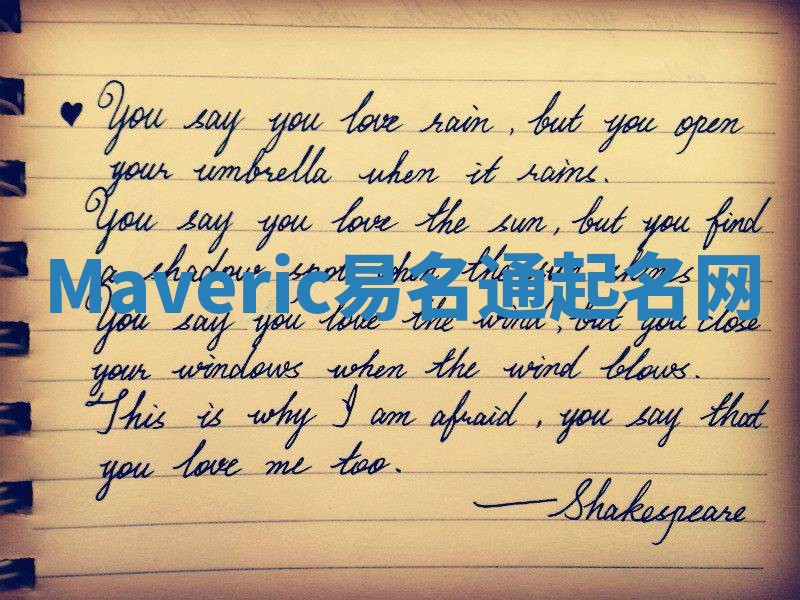 ♥ You say you love rain, but you open
your umbrella when it rains.
You say you love the sun, but you find
a shadow spot when the sun shines
Maveric易名通起名网
You say you love the wind, but you close
your windows when the wind blows.
This is why I am afraid, you say that
you love me too.
—Shakespeare